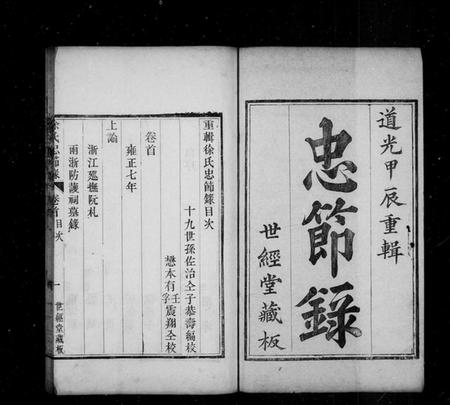 道光甲辰重輯
忠節錄
世經堂藏板
重輯徐氏忠節錄目次
十九世孫佐治仝子恭壽編校
懋本有壬震翔仝校
卷首
雍正七年
上諭
浙江廵撫阮札
兩浙防護祠墓錄
徐氏忠節錄
卷首目次
一
世經堂藏板